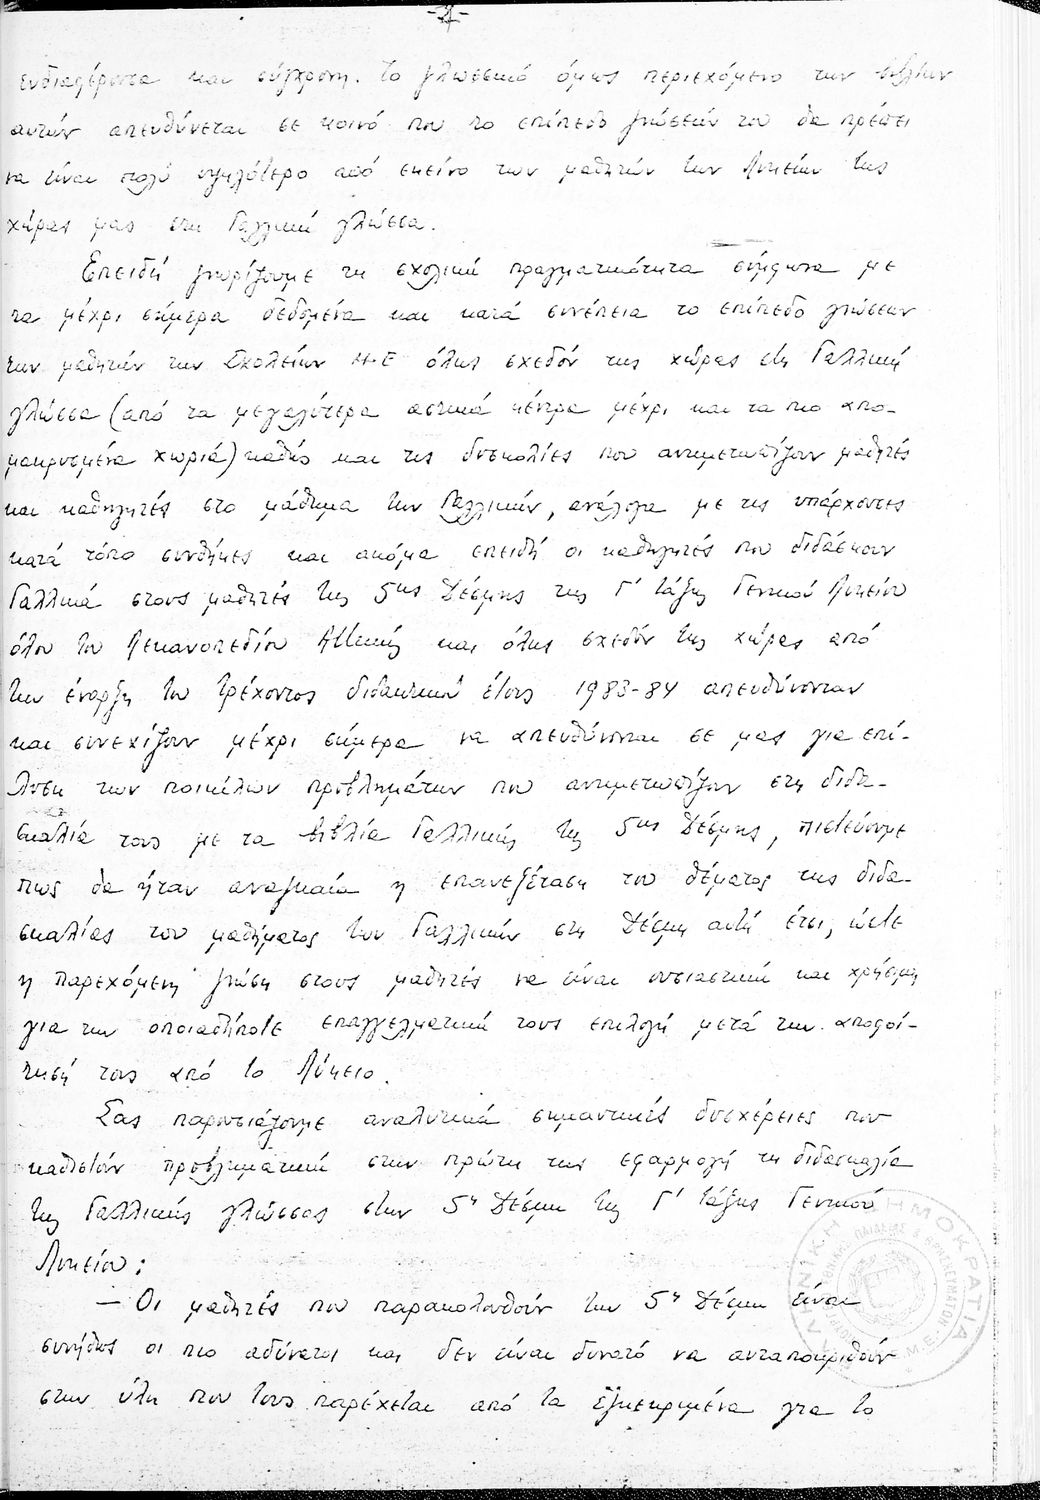 -2-
ενδιαφέροντα και σύγχρονη. Το γλωσσικό όμως περιεχόμενο των βιβλίων
αυτών απευθύνεται σε κοινό που το επίπεδο γνώσεών του θα πρέπει
να είναι πολύ υψηλότερο από εκείνο των μαθητών των Λυκείων της
χώρας μας στη Γαλλική γλώσσα.
Επειδή γνωρίζουμε τη σχολική πραγματικότητα σύμφωνα με
τα μέχρι σήμερα δεδομένα και κατά συνέπεια το επίπεδο γνώσεων
των μαθητών των Σχολείων Μ.Ε όλης σχεδόν της χώρας στη Γαλλική
γλώσσα (από τα μεγαλύτερα αστικά κέντρα μέχρι και τα πιο απο-
μακρυσμένα χωριά) καθώς και τις δυσκολίες που αντιμετωπίζουν μαθητές
και καθηγητές στο μάθημα των Γαλλικών, ανάλογα με τις υπάρχουσες
κατά τόπο συνθήκες και ακόμα επειδή οι καθηγητές που διδάσκουν
Γαλλικά στους μαθητές της 5ης Δέσμης της Γ' τάξης Γενικού Λυκείου
όλου του Λεκανοπεδίου Αττικής και όλης σχεδόν της χώρας από
την έναρξη του τρέχοντος διδακτικού έτους 1983-84 απευθύνονταν
και συνεχίζουν μέχρι σήμερα να απευθύνονται σε μας για επί-
λυση των ποικίλων προβλημάτων που αντιμετωπίζουν στη διδα-
σκαλία τους με τα βιβλία Γαλλικής της 5ης Δέσμης, πιστεύουμε
πως θα ήταν αναγκαία η επανεξέταση του θέματος της διδα-
σκαλίας του μαθήματος των Γαλλικών στη Δέσμη αυτή έτσι, ώστε
η παρεχόμενη γνώση στους μαθητές να είναι ουσιαστική και χρήσιμη
για την οποιαδήποτε επαγγελματική τους επιλογή μετά την αποφοί-
τησή τους από το Λύκειο.
Σας παρουσιάζουμε αναλυτικά σημαντικές δυσχέρειες που
καθιστούν προβληματική στην πρώτη της εφαρμογή τη διδασκαλία
της Γαλλικής γλώσσας στην 5η Δέσμη της Γ' τάξης Γενικού
Λυκείου:
— Οι μαθητές που παρακολουθούν την 5η Δέσμη είναι
συνήθως οι πιο αδύνατοι και δεν είναι δυνατό να ανταποκριθούν
στην ύλη που τους παρέχεται από τα εγκεκριμένα για το
ΕΛΛΗΝΙΚΗ ΔΗΜΟΚΡΑΤΙΑ